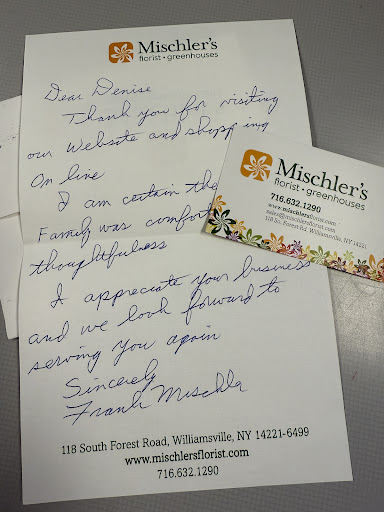 Mischler's
florist • greenhouses
Dear Denise
Thank you for visiting
our website and shopping
On line
I am certain the
Family was comfort
thoughtfulness
I appreciate your business
and we look forward to
serving you again
Sincerely
Frank Mischler
118 South Forest Road, Williamsville, NY 14221-6499
www.mischlersflorist.com
716.632.1290
Mischler's
florist • greenhouses
716.632.1290
www.mischlersflorist.com
sales@mischlersflorist.com
118 So. Forest Rd. Williamsville, NY 14221